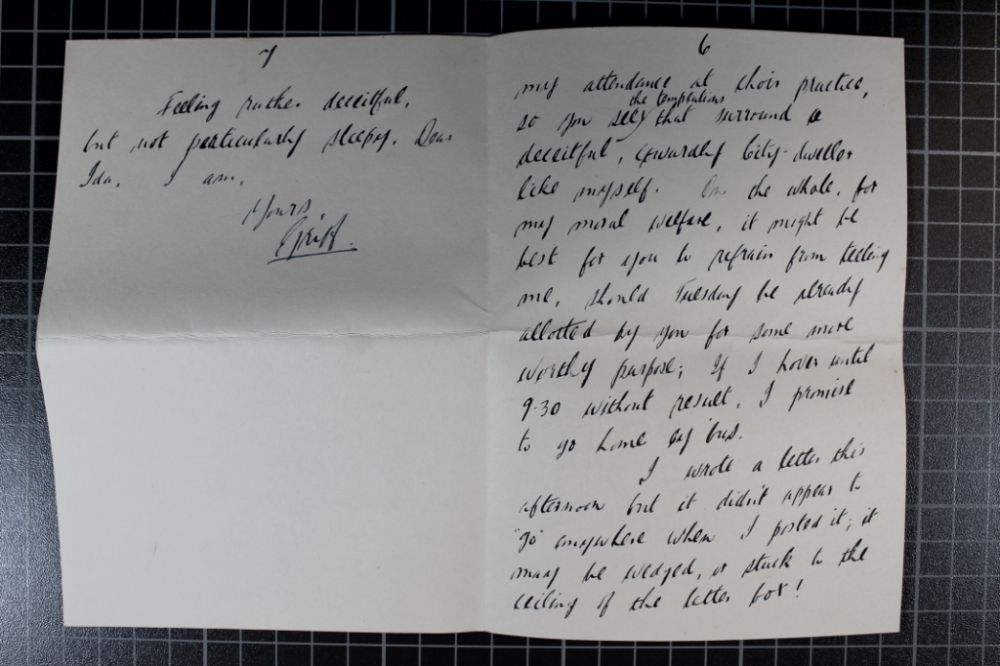 6
my attendance at choir practice,
the temptations
so you see, that surround a
deceitful, cowardly City-dweller
like myself. On the whole, for
my moral welfare, it might be
best for you to refrain from telling
me, should Tuesday be already
allotted by you for some more
worthy purpose; If I hover until
9.30 without result, I promise
to go home by bus.
I wrote a letter this
afternoon but it didn't appear to
"go" anywhere when I posted it; it
may be wedged, or stuck to the
ceiling of the letter box!
7
Feeling rather deceitful,
but not particularly sleepy, Dear
Ida, I am,
Yours,